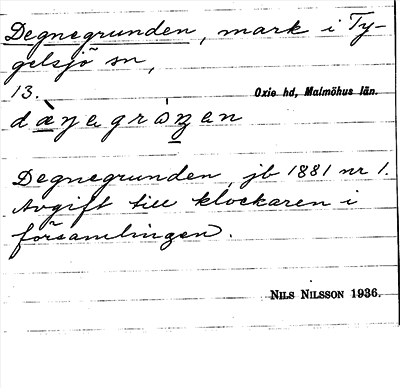 Degnegrunden, mark i Ty-
gelsjö sn,
13. Oxie hd, Malmöhus län.
Degnegrunden, jb 1881 nr 1.
Avgift till klockaren i
församlingen.
NILS NILSSON 1936.